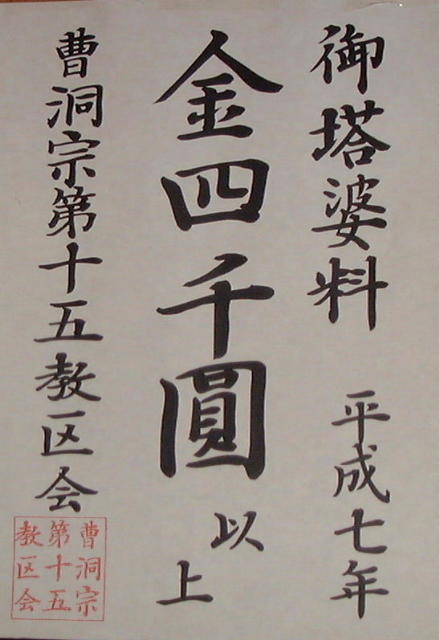 御塔婆料 平成七年
金四千圓以上
曹洞宗第十五教区会
曹洞宗
第十五
教区会